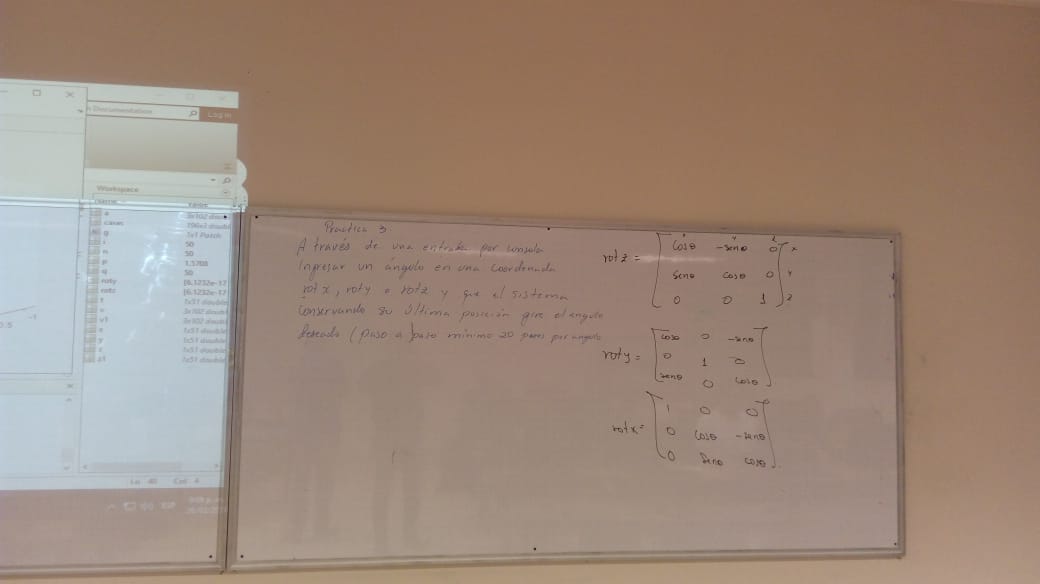 Documentation
Log in
Workspace
Value
a 3x102 doub
casas
g 1x1 Patch
i 50
n 50
p 1.5708
q 50
roty [6.1232e-17
rotz [6.1232e-17
t 1x51 double
v 3x102 double
v1 3x102 double
x 1x51 double
y 1x51 double
z 1x51 double
z1 1x51 double
-1
0.5
Ln 40 Col 4
ESP
Practica 3
A través de una entrada por consola
Ingresar un ángulo en una coordenada
rot x, roty o rotz y que el sistema
conservando su última posición gire el angulo
deseado (paso a paso mínimo 20 pasos por angulo
x y z
rotz = [ cosθ -senθ 0 ] x
senθ cosθ 0 y
0 0 1 z
roty = [ cosθ 0 -senθ ]
0 1 0
senθ 0 cosθ
rotx = [ 1 0 0 ]
0 cosθ -senθ
0 senθ cosθ